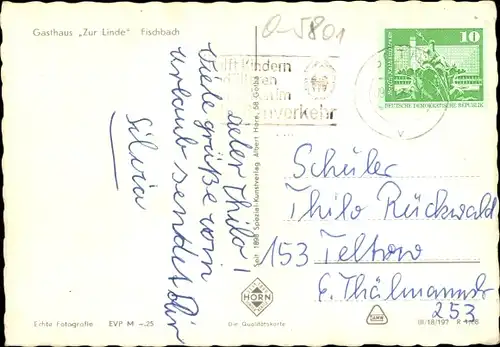 Gasthaus „Zur Linde" Fischbach
O-5801
Helft Kindern
und Älteren
im
Straßenverkehr
10
Berlin, Neptunbrunnen
DEUTSCHE DEMOKRATISCHE REPUBLIK
Lieber Thilo!
Viele grüße vom
Urlaub sendet Dir
Silvia
Schüler
Thilo Rückwald
153 Teltow
E. Thälmannstr
253
Seit 1898 Spezial-Kunstverlag Albert Horn, 58 Gotha
HORN
Die Qualitätskarte
Echte Fotografie EVP M -.25
III/18/197 R 1/68